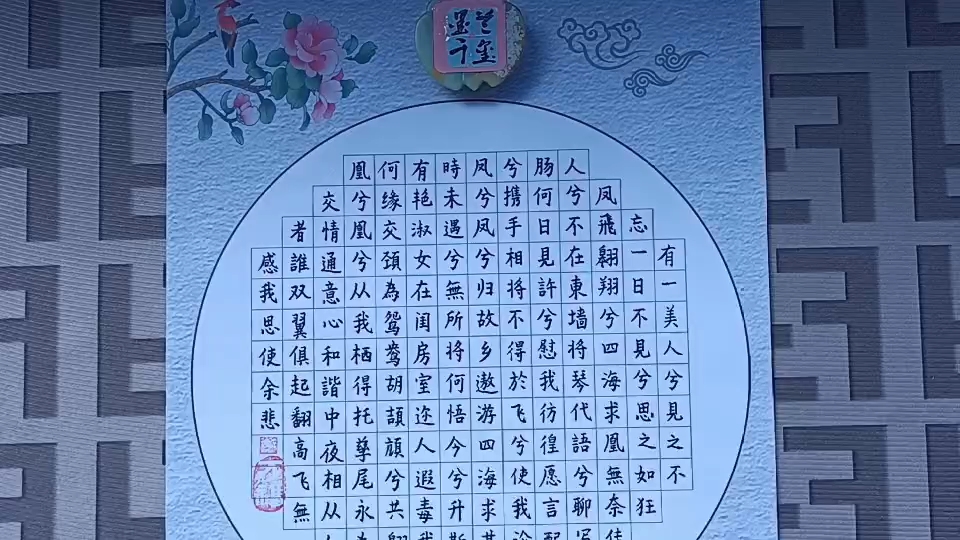 有一美人兮見之不
忘一日不見兮思之如狂
凤飛翱翔兮四海求凰無奈佳
人兮不在東墙将琴代語兮聊写
肠何日見許兮慰我彷徨愿言配
兮携手相将不得於飞兮使我沦
凤兮凤兮归故乡遨游四海求其
時未遇兮無所将何悟今兮升斯
有艳淑女在闺房室迩人遐毒我
何缘交頸為鸳鸯胡頡頏兮共翱
凰兮凰兮从我栖得托孳尾永為
交情通意心和諧中夜相从
者誰双翼俱起翻高飞無
感我思使余悲